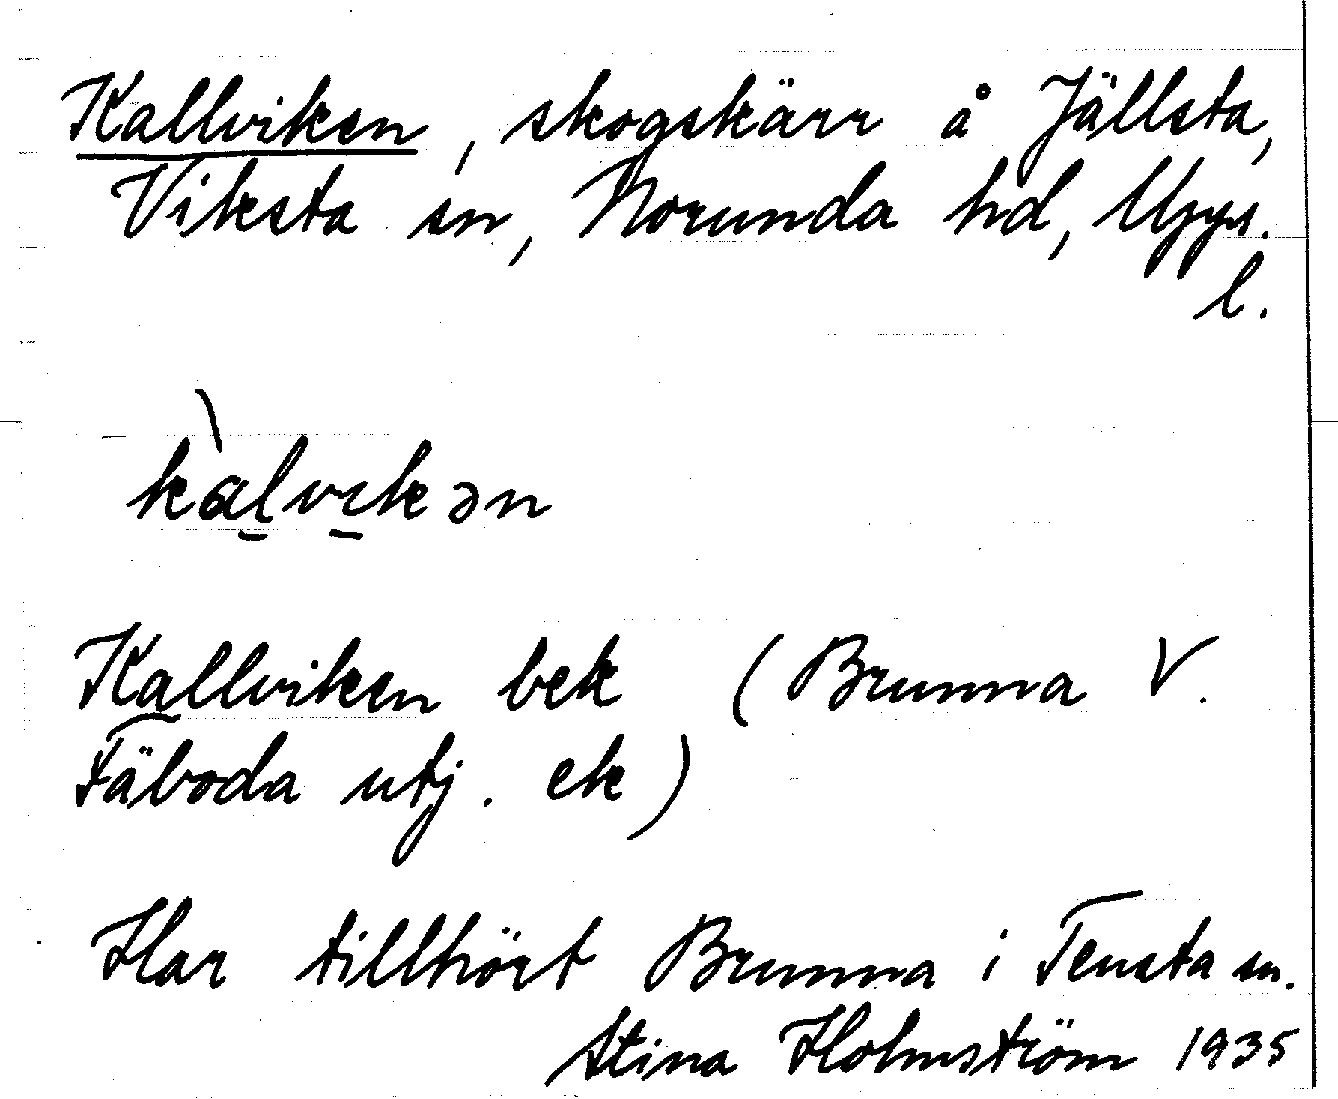 Kallviken, skogskärr å Jällsta,
Viksta sn, Norunda hd, Upps.
l.
kàl̠vi̠kən
Kallviken bek (Brunna V.
Fäboda utj. ek)
Har tillhört Brunna i Tensta sn.
Stina Holmström 1935